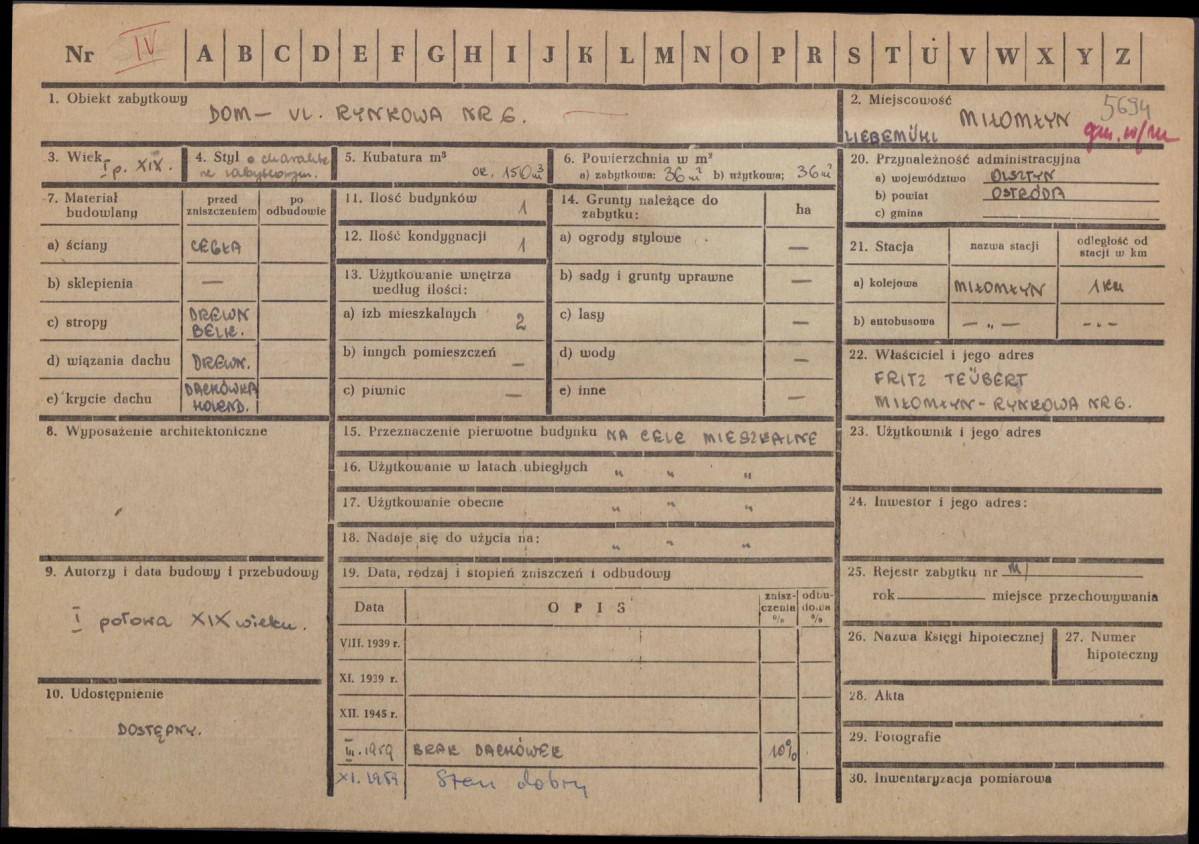 Nr IV A B C D E F G H I J K L M N O P R S T U V W X Y Z
1. Obiekt zabytkowy
DOM — UL. RYNKOWA NR 6.
2. Miejscowość
5694
MIŁOMŁYN
LIEBEMÜHL
3. Wiek
I p. XIX.
4. Styl o charakte
rze zabytkowym.
5. Kubatura m³
ok. 150 m³
6. Powierzchnia w m²
a) zabytkowa: 36 m² b) użytkowa; 36 m²
20. Przynależność administracyjna
a) województwo OLSZTYN
b) powiat OSTRÓDA
c) gmina
7. Materiał
budowlany
przed
zniszczeniem
po
odbudowie
a) ściany CEGŁA
b) sklepienia —
c) stropy DREWN
BELK.
d) wiązania dachu DREWN.
e) krycie dachu DACHÓWKA
HOLEND.
11. Ilość budynków 1
12. Ilość kondygnacji 1
13. Użytkowanie wnętrza
według ilości:
a) izb mieszkalnych 2
b) innych pomieszczeń —
c) piwnic —
14. Grunty należące do
zabytku:
ha
a) ogrody stylowe —
b) sady i grunty uprawne —
c) lasy —
d) wody —
e) inne —
21. Stacja
nazwa stacji
odległość od
stacji w km
a) kolejowa MIŁOMŁYN 1 km
b) autobusowa — „ — — „ —
22. Właściciel i jego adres
FRITZ TEÜBERT
MIŁOMŁYN - RYNKOWA NR 6.
8. Wyposażenie architektoniczne
15. Przeznaczenie pierwotne budynku NA CELE MIESZKALNE
16. Użytkowanie w latach ubiegłych „ „ „
17. Użytkowanie obecne „ „ „
18. Nadaje się do użycia na: „ „ „
23. Użytkownik i jego adres
24. Inwestor i jego adres:
9. Autorzy i data budowy i przebudowy
I połowa XIX wieku.
10. Udostępnienie
DOSTĘPNY.
19. Data, rodzaj i stopień zniszczeń i odbudowy
Data
OPIS
znisz-
czenia
%
odbu-
dowa
%
VIII. 1939 r.
XI. 1939 r.
XII. 1945 r.
III. 1959 BRAK DACHÓWEK 10%
XI. 1959 Stan dobry
25. Rejestr zabytku nr
rok miejsce przechowywania
26. Nazwa Księgi hipotecznej
27. Numer
hipoteczny
28. Akta
29. Fotografie
30. Inwentaryzacja pomiarowa